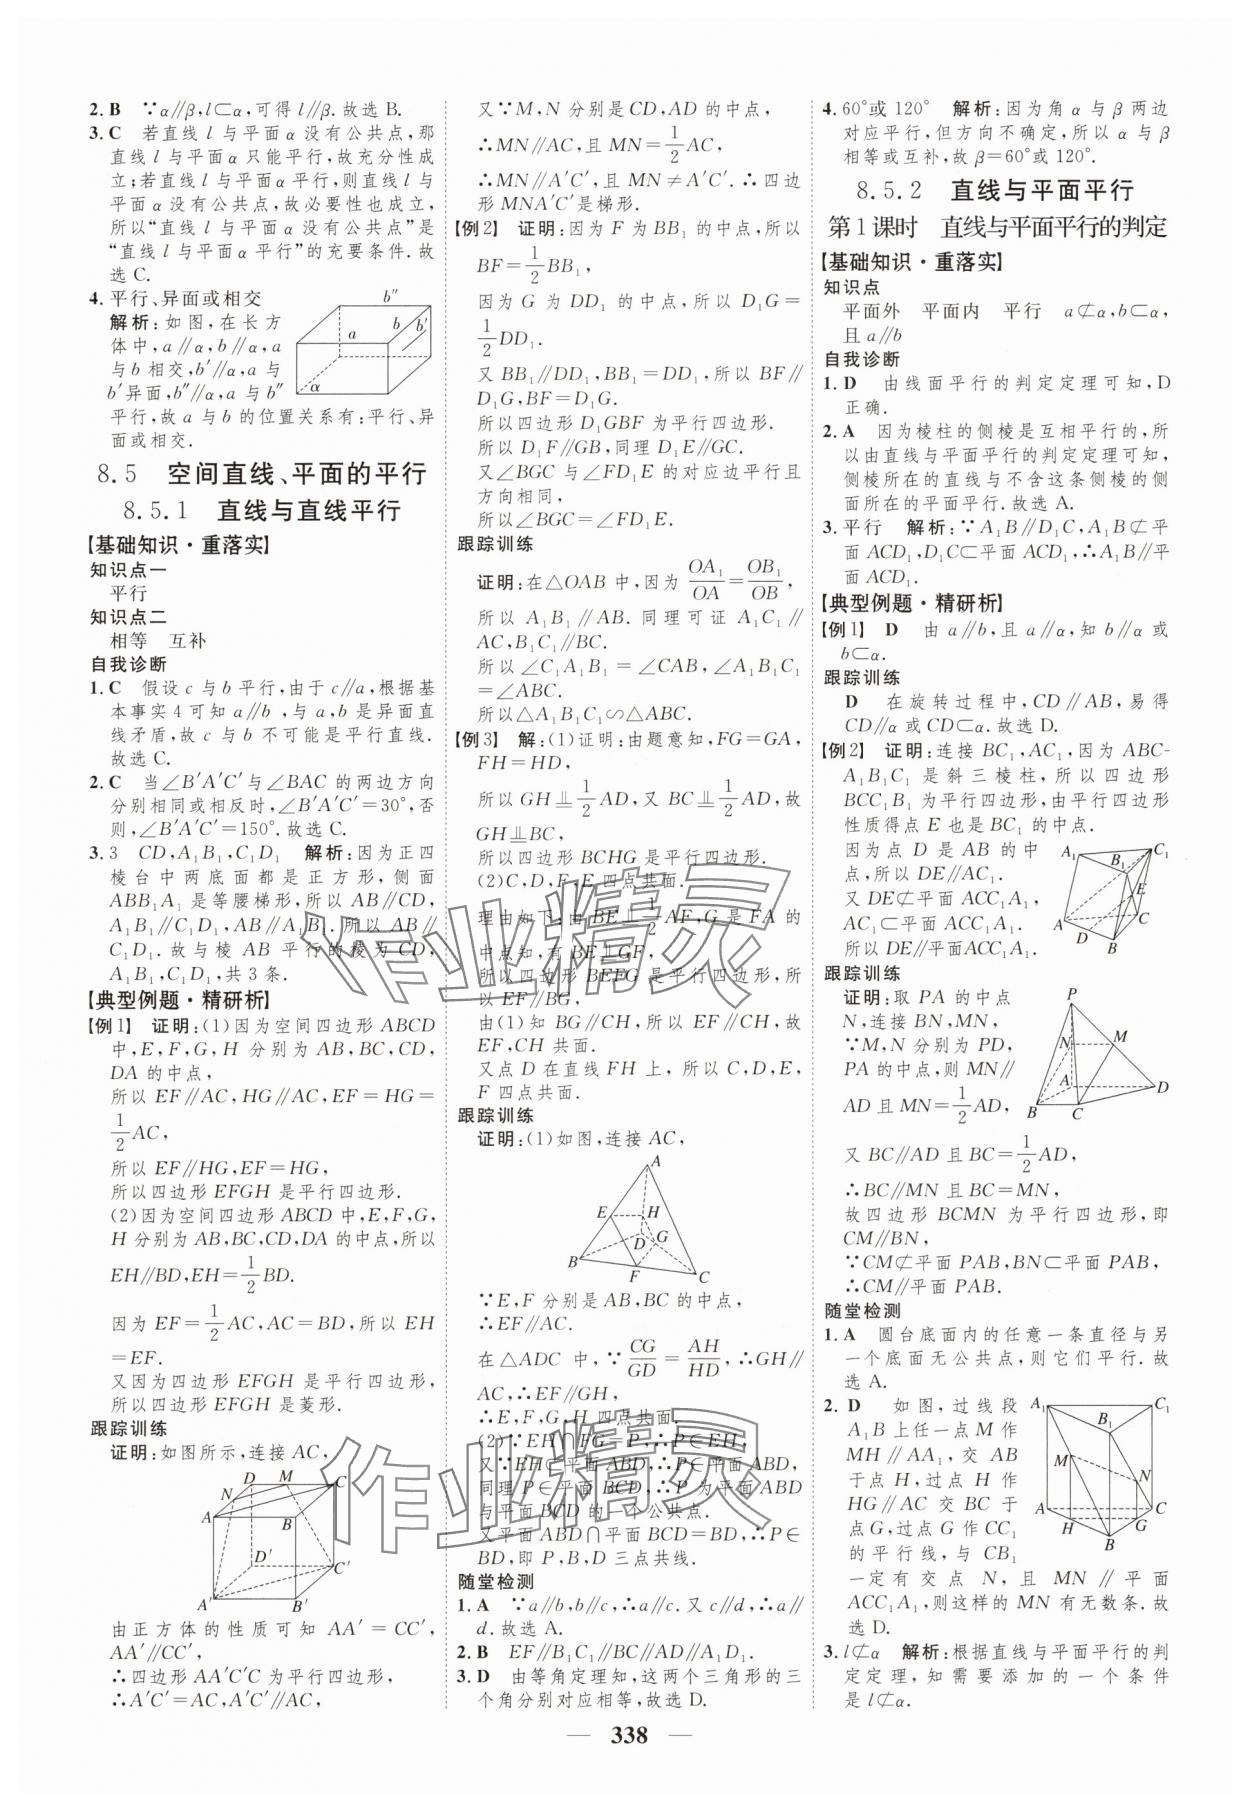 2. B　∵α∥β,l⊂α,可得l∥β.故选B.
3. C　若直线l与平面α没有公共点,那
直线l与平面α只能平行,故充分性成
立;若直线l与平面α平行,则直线l与
平面α没有公共点,故必要性也成立,
所以“直线l与平面α没有公共点”是
“直线l与平面α平行”的充要条件.故
选C.
4. 平行、异面或相交
解析:如图,在长方
体中,a∥α,b∥α,a
与b相交,b′∥α,a与
b′异面,b″∥α,a与b″
平行,故a与b的位置关系有:平行、异
面或相交.
b″
b
b′
a
α
8.5　空间直线、平面的平行
8.5.1　直线与直线平行
【基础知识·重落实】
知识点一
平行
知识点二
相等　互补
自我诊断
1. C　假设c与b平行,由于c∥a,根据基
本事实4可知a∥b,与a,b是异面直
线矛盾,故c与b不可能是平行直线.
故选C.
2. C　当∠B′A′C′与∠BAC的两边方向
分别相同或相反时,∠B′A′C′=30°,否
则,∠B′A′C′=150°.故选C.
3. 3　CD,A₁B₁,C₁D₁　解析:因为正四
棱台中两底面都是正方形,侧面
ABB₁A₁是等腰梯形,所以AB∥CD,
A₁B₁∥C₁D₁,AB∥A₁B₁.所以AB∥
C₁D₁.故与棱AB平行的棱为CD,
A₁B₁,C₁D₁,共3条.
【典型例题·精研析】
【例1】　证明:(1)因为空间四边形ABCD
中,E,F,G,H分别为AB,BC,CD,
DA的中点,
所以EF∥AC,HG∥AC,EF=HG=
1/2 AC,
所以EF∥HG,EF=HG.
所以四边形EFGH是平行四边形.
(2)因为空间四边形ABCD中,E,F,G,
H分别为AB,BC,CD,DA的中点,所以
EH∥BD,EH=1/2 BD.
因为EF=1/2 AC,AC=BD,所以EH
=EF.
又因为四边形EFGH是平行四边形,
所以四边形EFGH是菱形.
跟踪训练
证明:如图所示,连接AC,
D M C
N
A B
D′ C′
A′ B′
由正方体的性质可知AA′=CC′,
AA′∥CC′,
∴四边形AA′C′C为平行四边形,
∴A′C′=AC,A′C′∥AC,
又∵M,N分别是CD,AD的中点,
∴MN∥AC,且MN=1/2 AC,
∴MN∥A′C′,且MN≠A′C′.∴四边
形MNA′C′是梯形.
【例2】　证明:因为F为BB₁的中点,所以
BF=1/2 BB₁,
因为G为DD₁的中点,所以D₁G=
1/2 DD₁.
又BB₁∥DD₁,BB₁=DD₁,所以BF∥
D₁G,BF=D₁G.
所以四边形D₁GBF为平行四边形.
所以D₁F∥GB,同理D₁E∥GC.
又∠BGC与∠FD₁E的对应边平行且
方向相同,
所以∠BGC=∠FD₁E.
跟踪训练
证明:在△OAB中,因为OA₁/OA=OB₁/OB,
所以A₁B₁∥AB.同理可证A₁C₁∥
AC,B₁C₁∥BC.
所以∠C₁A₁B₁=∠CAB,∠A₁B₁C₁
=∠ABC.
所以△A₁B₁C₁∽△ABC.
【例3】　解:(1)证明:由题意知,FG=GA,
FH=HD,
所以GH⫫1/2 AD,又BC⫫1/2 AD,故
GH⫫BC,
所以四边形BCHG是平行四边形.
(2)C,D,F,E四点共面.
理由如下:由BE⫫1/2 AF,G是FA的
中点知,有BE⫫GF,
所以四边形BEFG是平行四边形,所
以EF∥BG,
由(1)知BG∥CH,所以EF∥CH,故
EF,CH共面.
又点D在直线FH上,所以C,D,E,
F四点共面.
跟踪训练
证明:(1)如图,连接AC,
A
E H
D G
B
F C
∵E,F分别是AB,BC的中点,
∴EF∥AC.
在△ADC中,∵CG/GD=AH/HD,∴GH∥
AC,∴EF∥GH,
∴E,F,G,H四点共面.
(2)∵EH∩FG=P,∴P∈EH,
又∵EH⊂平面ABD,∴P∈平面ABD,
同理P∈平面BCD,∴P为平面ABD
与平面BCD的一个公共点.
又平面ABD∩平面BCD=BD,∴P∈
BD,即P,B,D三点共线.
随堂检测
1. A　∵a∥b,b∥c,∴a∥c.又c∥d,∴a∥
d.故选A.
2. B　EF∥B₁C₁∥BC∥AD∥A₁D₁.
3. D　由等角定理知,这两个三角形的三
个角分别对应相等,故选D.
4. 60°或120°　解析:因为角α与β两边
对应平行,但方向不确定,所以α与β
相等或互补,故β=60°或120°.
8.5.2　直线与平面平行
第1课时　直线与平面平行的判定
【基础知识·重落实】
知识点
平面外　平面内　平行　a⊄α,b⊂α,
且a∥b
自我诊断
1. D　由线面平行的判定定理可知,D
正确.
2. A　因为棱柱的侧棱是互相平行的,所
以由直线与平面平行的判定定理可知,
侧棱所在的直线与不含这条侧棱的侧
面所在的平面平行.故选A.
3. 平行　解析:∵A₁B∥D₁C,A₁B⊄平
面ACD₁,D₁C⊂平面ACD₁,∴A₁B∥平
面ACD₁.
【典型例题·精研析】
【例1】　D　由a∥b,且a∥α,知b∥α或
b⊂α.
跟踪训练
D　在旋转过程中,CD∥AB,易得
CD∥α或CD⊂α.故选D.
【例2】　证明:连接BC₁,AC₁,因为ABC-
A₁B₁C₁是斜三棱柱,所以四边形
BCC₁B₁为平行四边形,由平行四边形
性质得点E也是BC₁的中点.
因为点D是AB的中
点,所以DE∥AC₁.
又DE⊄平面ACC₁A₁,
AC₁⊂平面ACC₁A₁,
所以DE∥平面ACC₁A₁.
A₁ C₁
B₁
E
A C
D B
跟踪训练
证明:取PA的中点
N,连接BN,MN,
∵M,N分别为PD,
PA的中点,则MN∥
AD且MN=1/2 AD,
P
N M
A D
B C
又BC∥AD且BC=1/2 AD,
∴BC∥MN且BC=MN,
故四边形BCMN为平行四边形,即
CM∥BN,
∵CM⊄平面PAB,BN⊂平面PAB,
∴CM∥平面PAB.
随堂检测
1. A　圆台底面内的任意一条直径与另
一个底面无公共点,则它们平行.故
选A.
2. D　如图,过线段
A₁B上任一点M作
MH∥AA₁,交AB
于点H,过点H作
HG∥AC交BC于
点G,过点G作CC₁
的平行线,与CB₁
一定有交点N,且MN∥平面
ACC₁A₁,则这样的MN有无数条.故
选D.
A₁ C₁
B₁
M
N
A C
H G
B
3. l⊄α　解析:根据直线与平面平行的判
定定理,知需要添加的一个条件
是l⊄α.
作业精灵
作业精灵
338